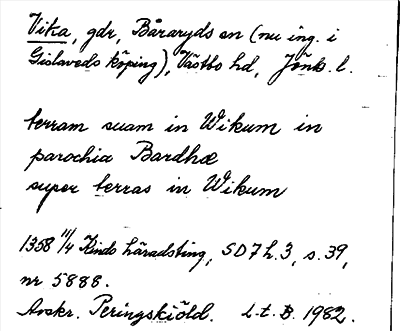 Vika, gdr, Båraryds sn (nu ing. i
Gislaveds köping), Västbo hd, Jönk. l.
terram suam in Wikum in
parochia Bardhæ
super terras in Wikum
1358 11/4 Kinds häradsting, SD 7 h. 3, s. 39,
nr 5888.
Avskr. Peringskiöld. L.t.B. 1982.